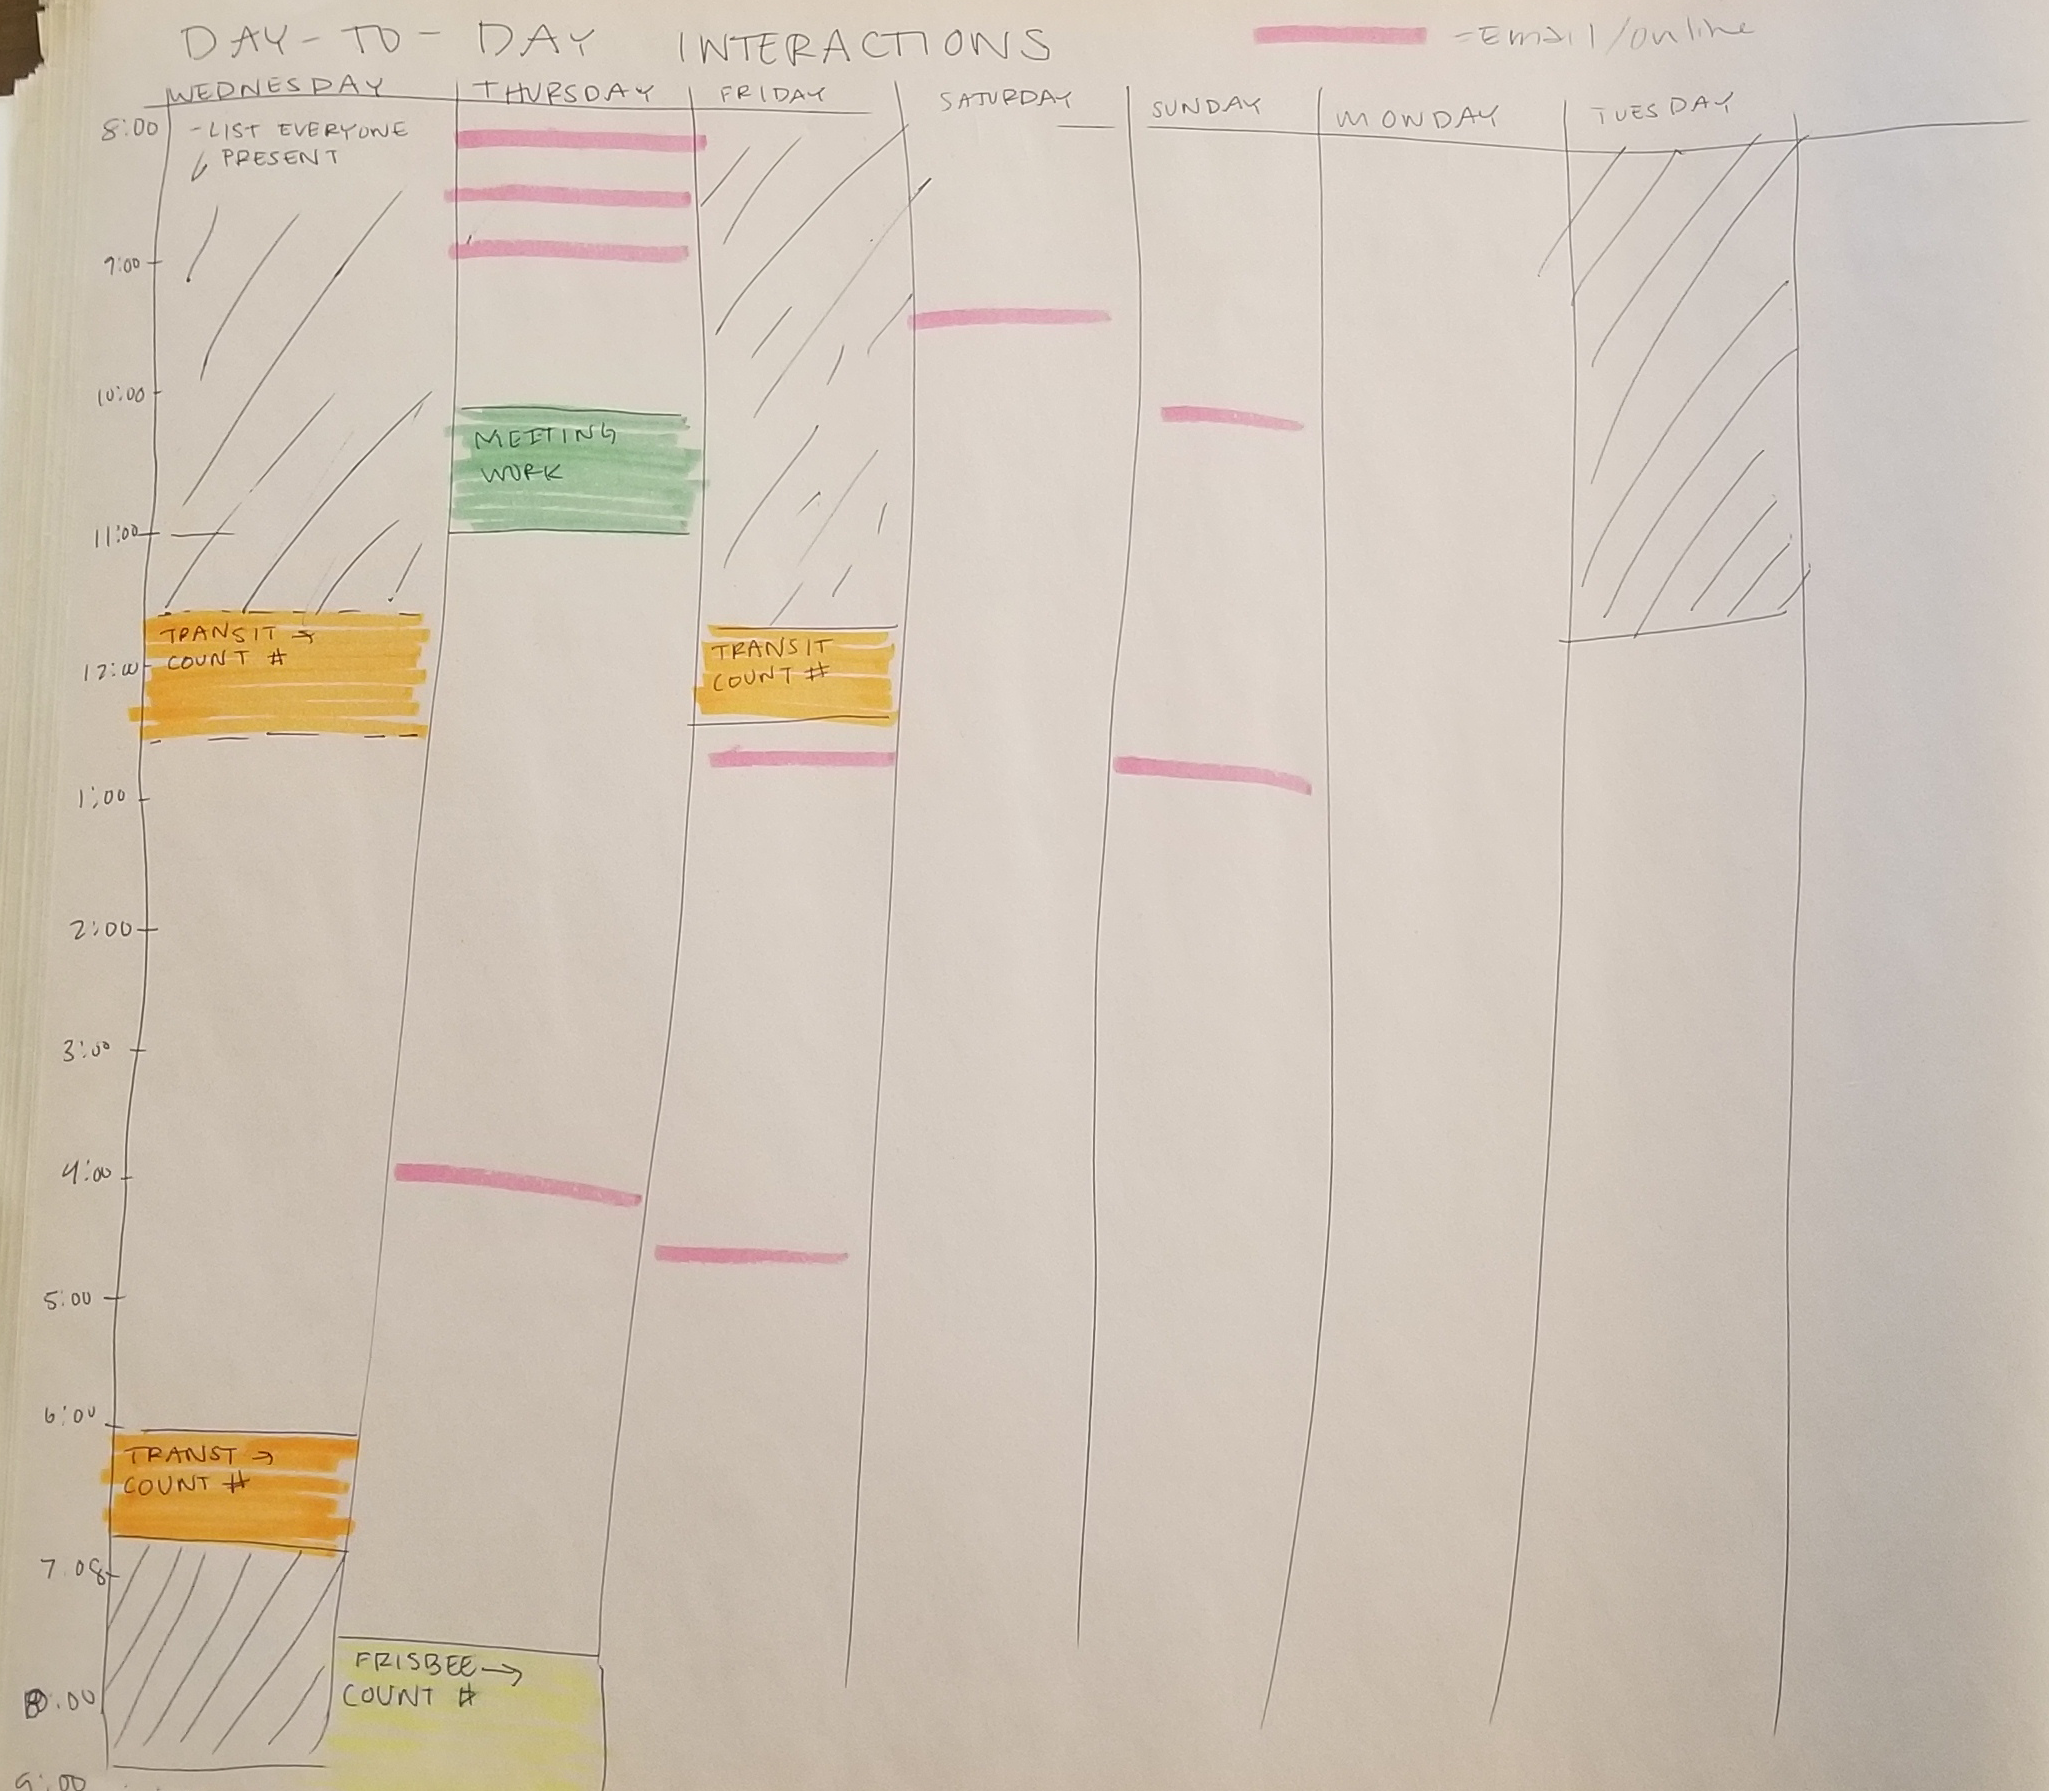 DAY-TO-DAY INTERACTIONS
-Email/online
WEDNESDAY THURSDAY FRIDAY SATURDAY SUNDAY MONDAY TUESDAY
8:00
-LIST EVERYONE
PRESENT
9:00
10:00
MEETING
WORK
11:00
TRANSIT →
COUNT #
TRANSIT
COUNT #
12:00
1:00
2:00
3:00
4:00
5:00
6:00
TRANST →
COUNT #
7.08
FRISBEE →
COUNT #
8:00
9:00